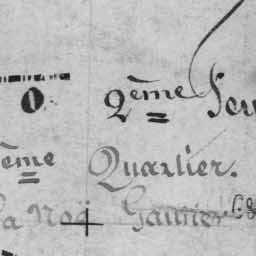 O 2ème Feu
ème Quartier.
La Noë Gautier